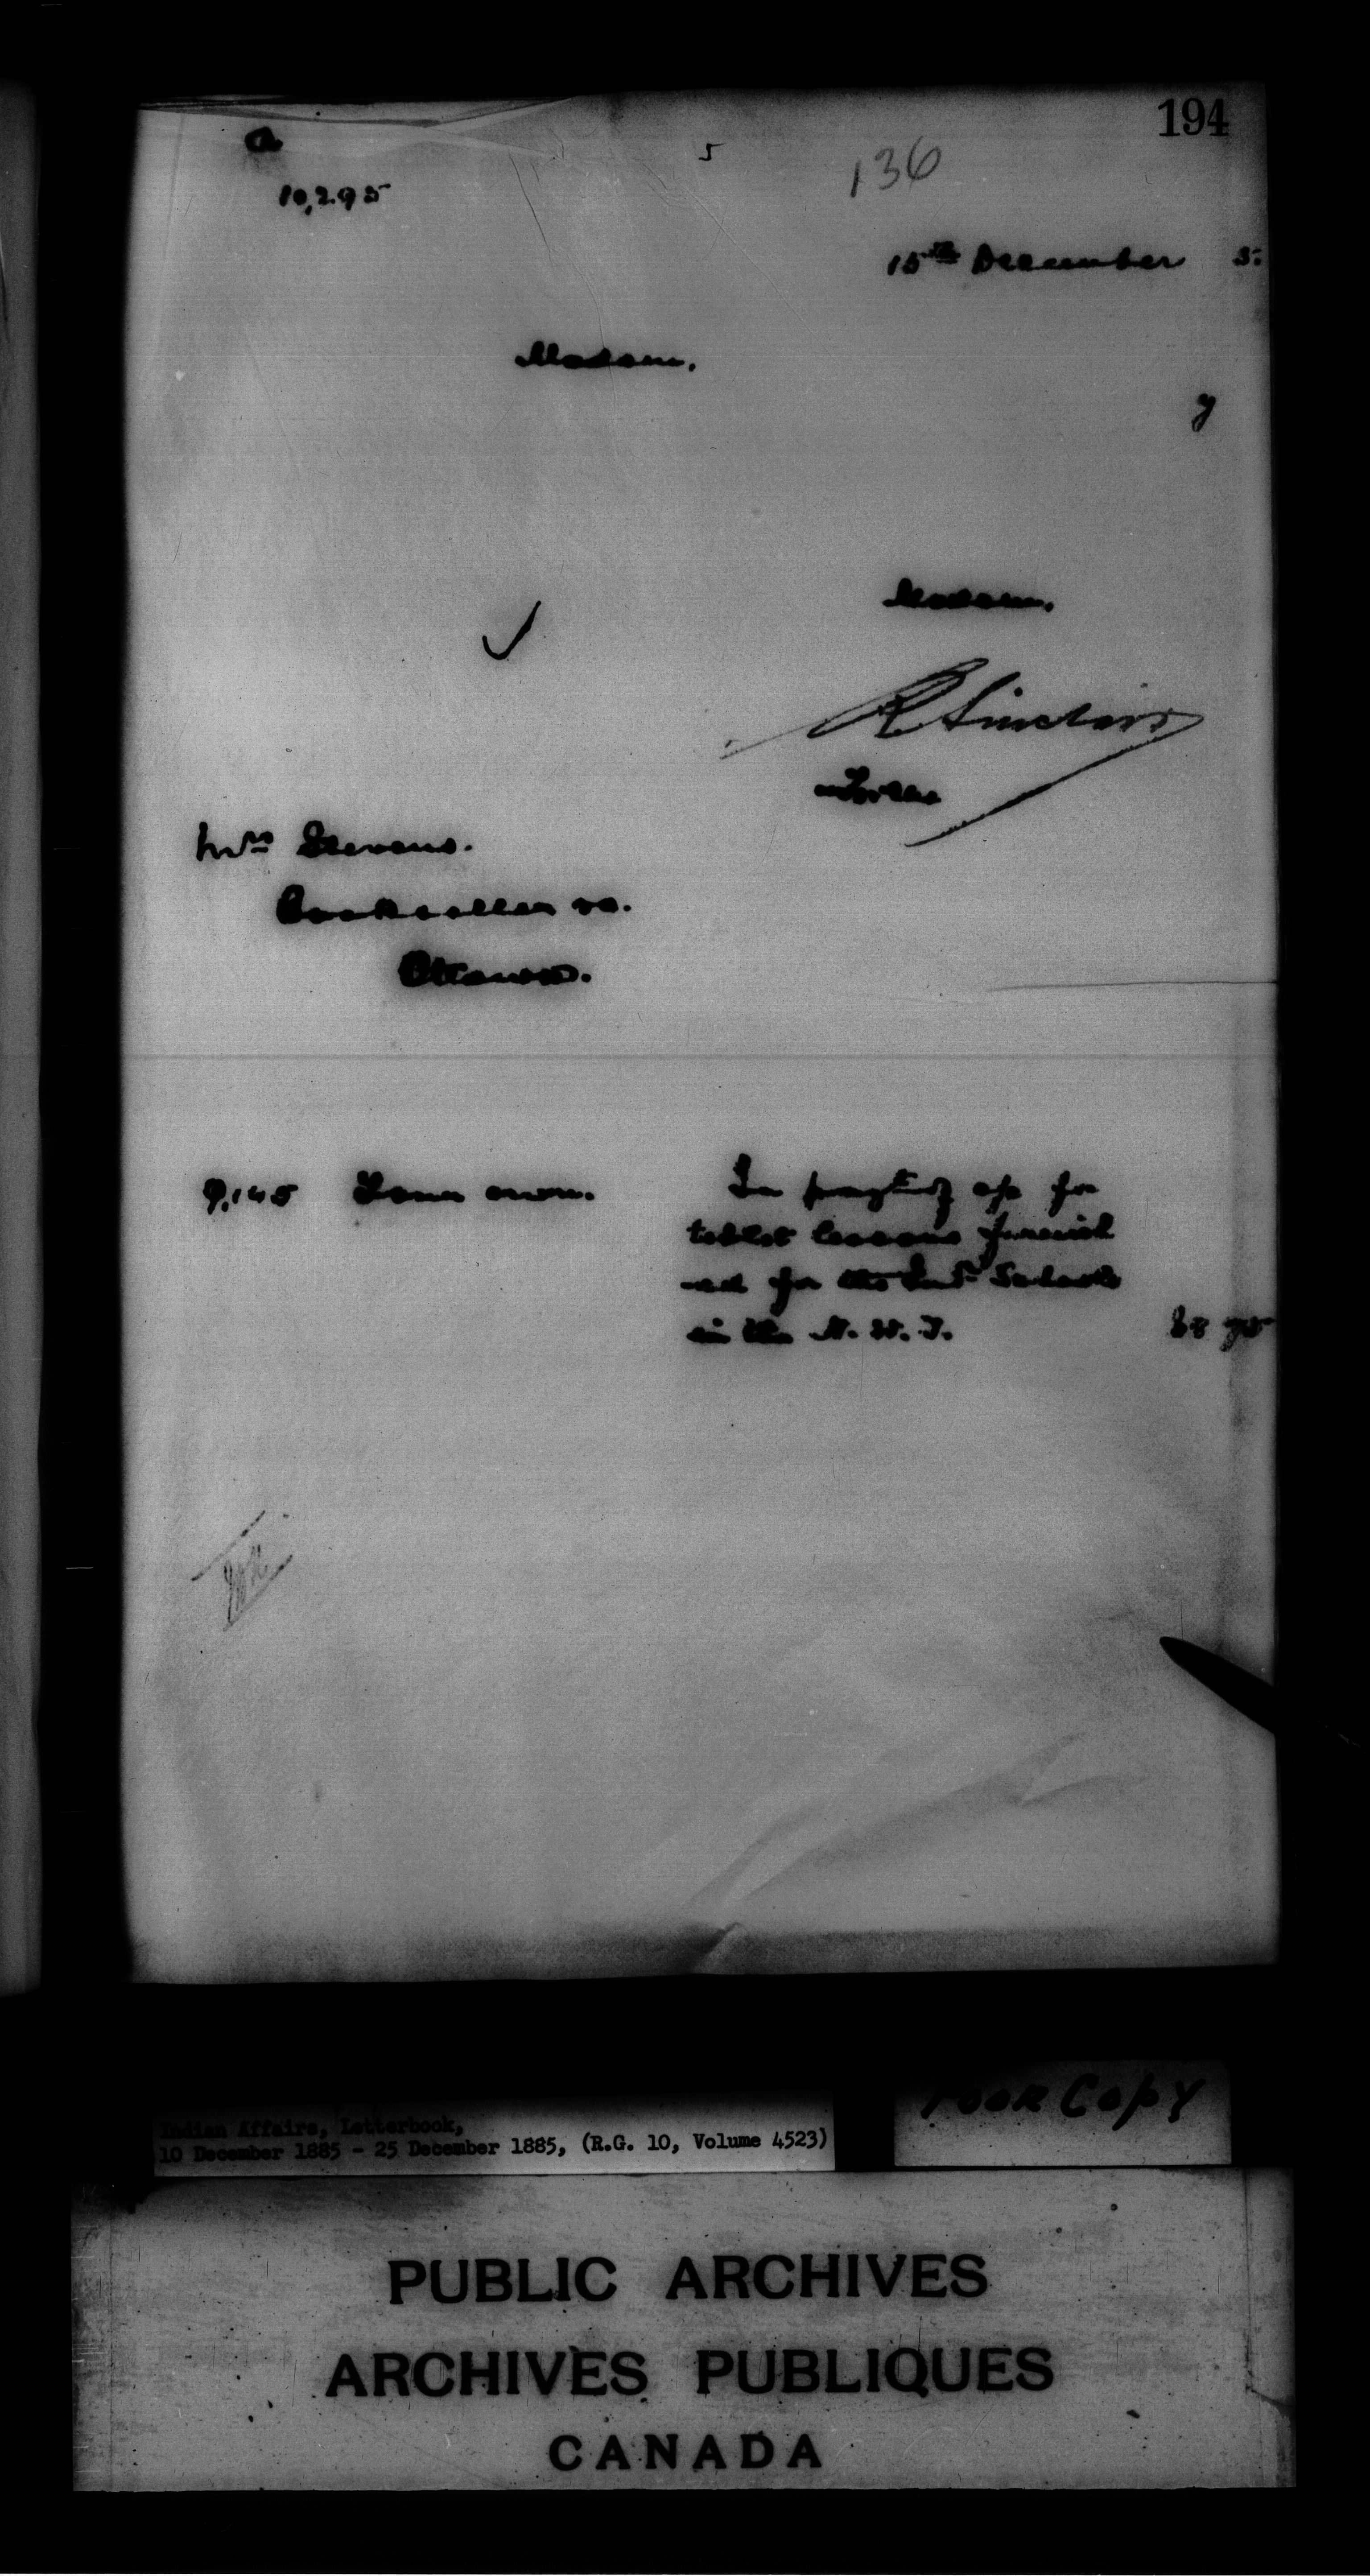 194
a
5
136
10,295
15th December 5.
Madam,
y
Madam,
R Sinclair
Mrs Stevens.
Bookseller &c.
Ottawa.
9,145 Your own.
In paymt of a/c for
tablet lessons furnish
ed for the Ind. Schools
in the N. W. T.
Indian Affairs, Letterbook,
10 December 1885 - 25 December 1885, (R.G. 10, Volume 4523)
Poor Copy
PUBLIC ARCHIVES
ARCHIVES PUBLIQUES
CANADA